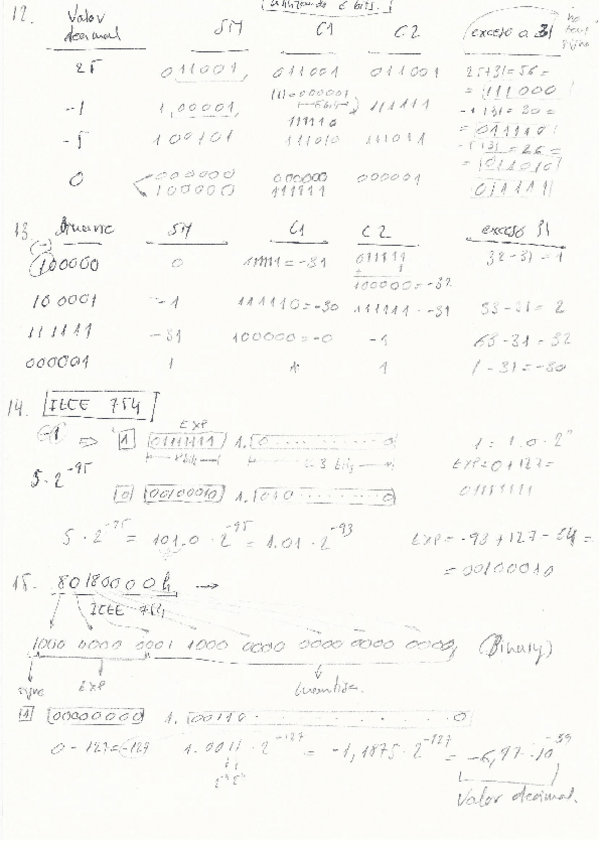 12. Valor decimal SM C1 C2 exceso a 31
25 011001 011001 011001 25+31=56=
= 111000
-1 1,00001 111110 111111 -1+31=30=
= 011110
-5 100101 111010 111011 -5+31=26=
= 011010
0 000000 000000 000001 011111
100000 111111
13. Binario SM C1 C2 exceso 31
100000 0 11111=-31 011111 32-31=1
100000=-32
100001 -1 111110=-30 111111=-31 33-31=2
111111 -31 100000=-0 -1 63-31=32
000001 1 1 1 1-31=-30
14. IEEE 754
EXP
⇒ 1 01111111 1. 0 0 1=1.0·2
EXP=0+127=
01111111
5·2^-95
0 00100010 1. 010 0
5·2^-95 = 101.0·2^-95 = 1.01·2^-93 EXP=-93+127=34=
=00100010
15. 80180000h →
IEEE 754
1000 0000 0001 1000 0000 0000 0000 0000 (Binary)
signo EXP mantisa.
1 00000000 1. 00110 0
0-127=-127 1.0011·2^-127 = -1,1875·2^-127 = -6,97·10^-39
Valor decimal.